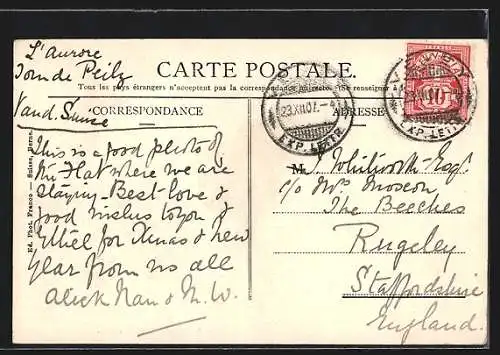 L'Aurore
Tour de Peilz
Vaud. Suisse
CARTE POSTALE.
Tous les pays étrangers n'acceptent pas la correspondance au recto. (Se renseigner à
CORRESPONDANCE
ADRESSE
Ed. Phot. Franco-Suisse, Berne.
23.XII.07.-4
EXP. LETTR.
VEVEY
23.XII.07
EXP. LETTR.
FRANCO
10
This is a good photo of
the Flat where we are
staying. Best love &
good wishes to you &
Ethel for Xmas & new
year from us all
Alick Nan & M.W.
M. J. Whitworth Esqr.
c/o Mrs Moxon
The Beeches
Rugeley
Staffordshire
England.